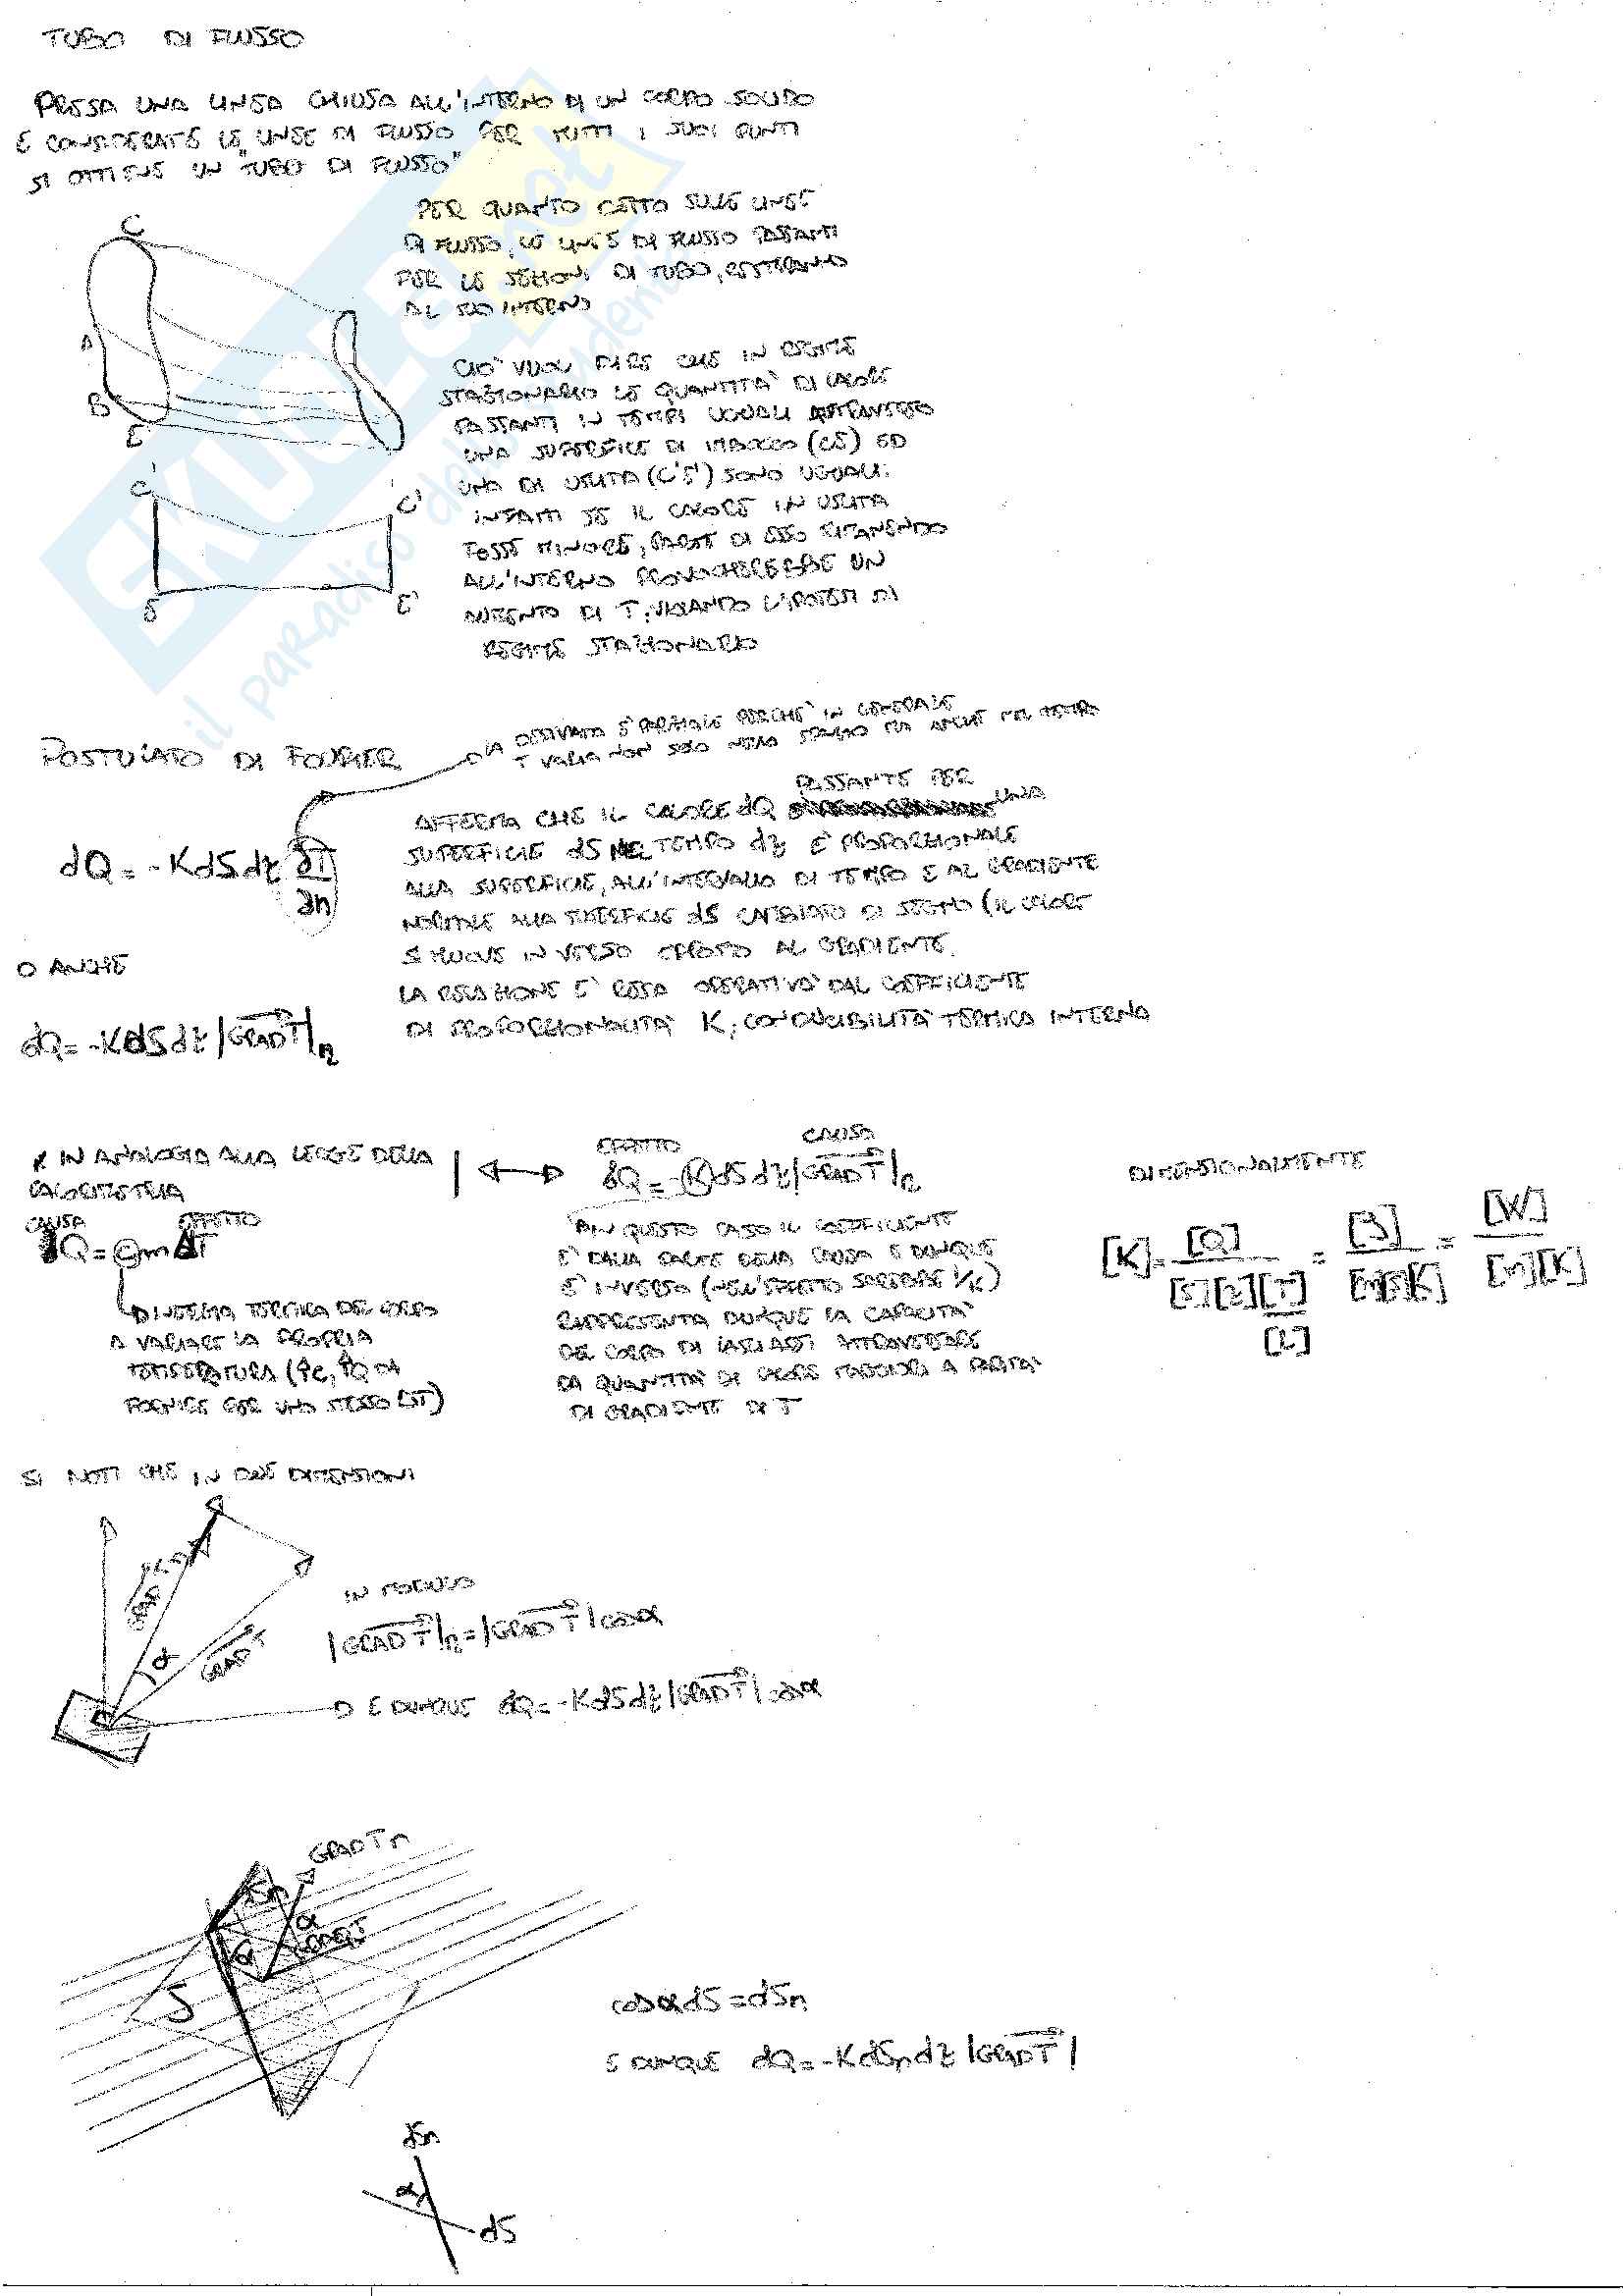 TUBO DI FLUSSO
PRESA UNA LINEA CHIUSA ALL'INTERNO DI UN CORPO SOLIDO
E CONSIDERATE LE LINEE DI FLUSSO PER TUTTI I SUOI PUNTI
SI OTTIENE UN "TUBO DI FLUSSO"
PER QUANTO DETTO SULLE LINEE
DI FLUSSO, LE LINEE DI FLUSSO PASSANTI
PER LE SEZIONI DI TUBO, RESTERANNO
AL SUO INTERNO
C
A
B
E
CIÒ VUOL DIRE CHE IN REGIME
STAZIONARIO LE QUANTITÀ DI CALORE
PASSANTI IN TEMPI UGUALI ATTRAVERSO
UNA SUPERFICE DI IMBOCCO (CE) ED
UNA DI USCITA (C'E') SONO UGUALI:
INFATTI SE IL CALORE IN USCITA
FOSSE MINORE, PARTE DI ESSO RIMANENDO
ALL'INTERNO PROVOCHEREBBE UN
AUMENTO DI T, VIOLANDO L'IPOTESI DI
REGIME STAZIONARIO
C
C'
E
E'
SKUOLA.net
il paradiso dello studente
POSTULATO DI FOURIER
LA DERIVATA È PARZIALE PERCHÈ IN GENERALE
T VARIA NON SOLO NELLO SPAZIO MA ANCHE NEL TEMPO
dQ = -K dS dz ∂T/∂n
AFFERMA CHE IL CALORE dQ PASSANTE PER UNA
SUPERFICIE dS NEL TEMPO dz È PROPORZIONALE
ALLA SUPERFICIE, ALL'INTERVALLO DI TEMPO E AL GRADIENTE
NORMALE ALLA SUPERFICIE dS CAMBIATO DI SEGNO (IL CALORE
SI MUOVE IN VERSO OPPOSTO AL GRADIENTE.
LA RELAZIONE È RESA OPERATIVA DAL COEFFICIENTE
DI PROPORZIONALITÀ K, CONDUCIBILITÀ TERMICA INTERNA
O ANCHE
dQ = -K dS dz |GRAD T|n
K IN ANALOGIA ALLA LEGGE DELLA
CALORIMETRIA
CAUSA EFFETTO
Q = c m ΔT
INERZIA TERMICA DEL CORPO
A VARIARE LA PROPRIA
TEMPERATURA (↑c, ↑Q DA
FORNIRE PER UNO STESSO ΔT)
EFFETTO CAUSA
dQ = -K dS dz |GRAD T|n
IN QUESTO CASO IL COEFFICIENTE
È DALLA PARTE DELLA CAUSA E DUNQUE
È INVERSO (NELL'EFFETTO SAREBBE 1/K)
RAPPRESENTA DUNQUE LA CAPACITÀ
DEL CORPO DI LASCIARSI ATTRAVERSARE
DA QUANTITÀ DI CALORE MAGGIORI A PARITÀ
DI GRADIENTE DI T
DIMENSIONALMENTE
[K] = [Q] / [S][z][T]/[L] = [J] / [m][s][K] = [W] / [m][K]
SI NOTI CHE IN DUE DIMENSIONI
α
GRAD T
IN MODULO
|GRAD T|n = |GRAD T| cos α
E DUNQUE dQ = -K dS dz |GRAD T| cos α
GRAD T n
Sn
α
GRAD T
α
S
cos α dS = dSn
E DUNQUE dQ = -K dSn dz |GRAD T|
dSn
α
dS